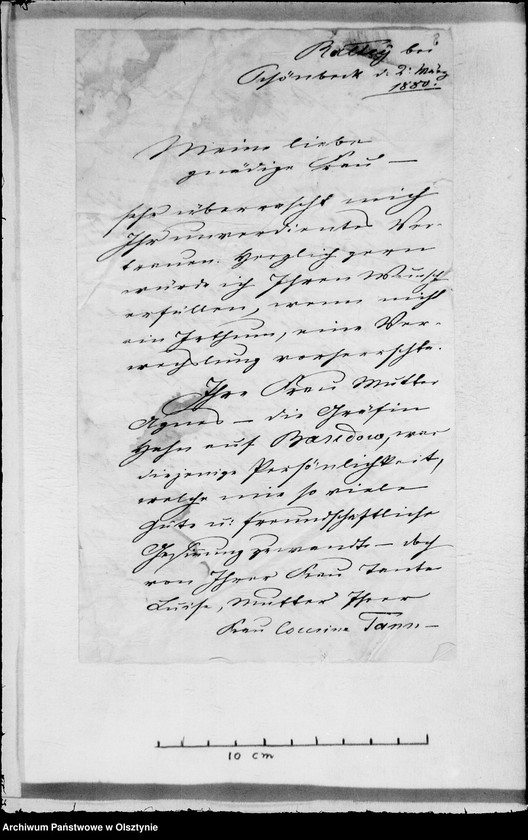 8
Rattey bei
Schönbeck d. 2t März
1880.
Meine liebe
gnädige Frau —
sehr überrascht mich
Ihr unverdientes Ver-
trauen. Herzlich gern
würde ich Ihren Wunsch
erfüllen, wenn nicht
ein Irthum, eine Ver-
wechslung vorherrschte.
Ihre Frau Mutter
Agnes — die Gräfin
Hahn auf Basedow, war
diejenige Persönlichkeit,
welche mir so viele
Güte u: freundschaftliche
Gesinnung zuwandte — doch
von Ihrer Frau Tante
Luise, Mutter Ihrer
Frau Cousine Tann —
10 cm
Archiwum Państwowe w Olsztynie